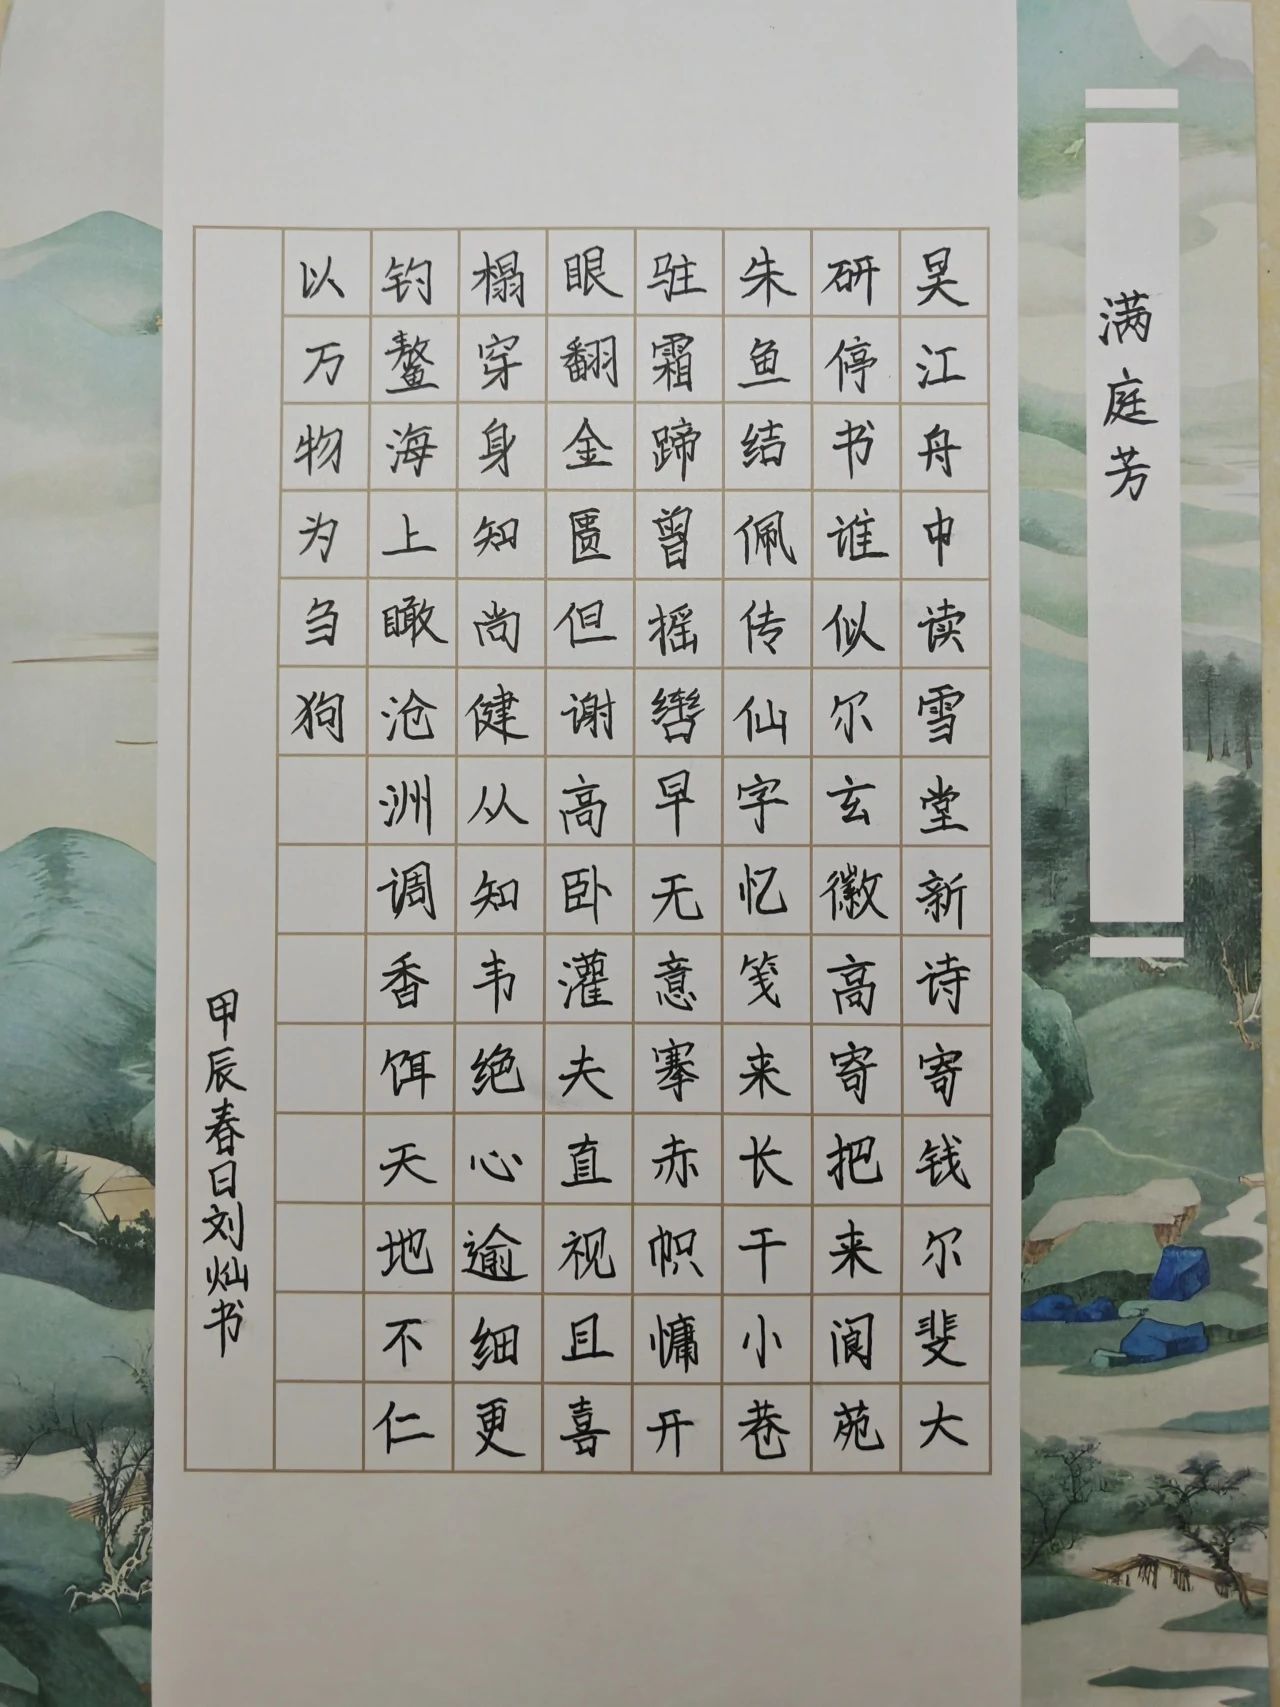 满庭芳
吴江舟中读雪堂新诗寄钱尔斐大
研停书谁似尔玄徽高寄把来阆苑
朱鱼结佩传仙字忆笺来长干小巷
驻霜蹄曾摇辔早无意搴赤帜慵开
眼翻金匮但谢高卧灌夫直视且喜
榻穿身知尚健从知韦绝心逾细更
钓鳌海上瞰沧洲调香饵天地不仁
以万物为刍狗
甲辰春日刘灿书